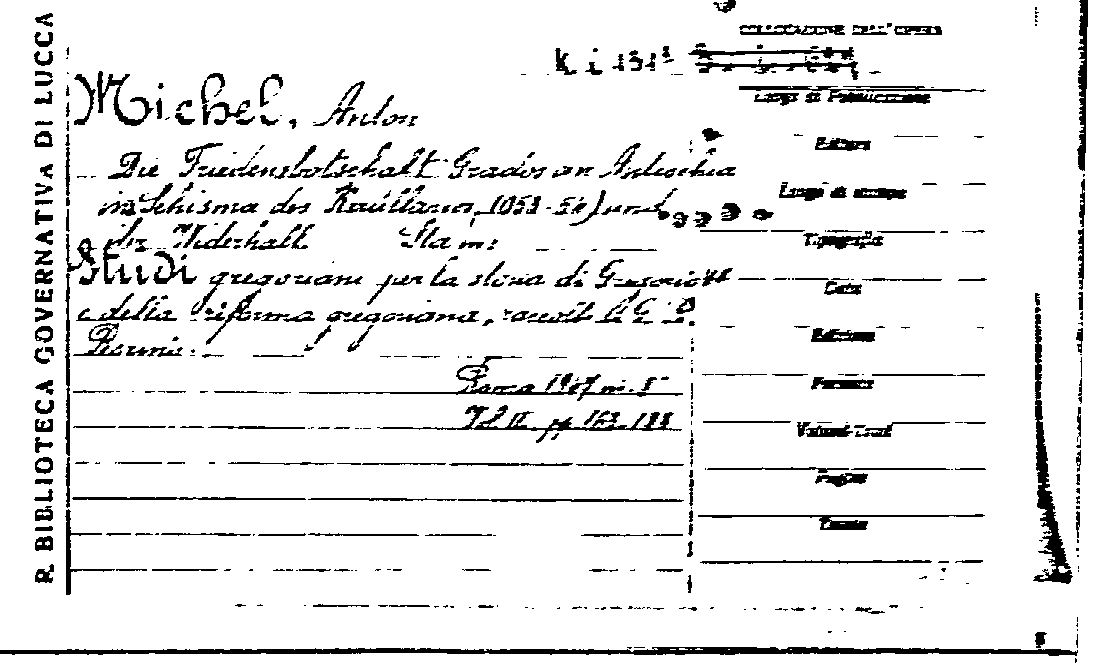 R. BIBLIOTECA GOVERNATIVA DI LUCCA
COLLOCAZIONE DELL'OPERA
K. i 151
Michel, Anton
Die Friedensbotschaft Grados an Antiochia
im Schisma des Kerullarios (1053-54) und
ihr Widerhall
Studi gregoriani per la storia di Gregorio VII
e della riforma gregoriana, raccolti
Roma 1947 in-8°
Vol. II. pp 163-188
Luogo di Pubblicazione
Editore
Luogo di stampa
Tipografia
Data
Edizione
Formato
Volumi-Tomi
Pagine
Tavole